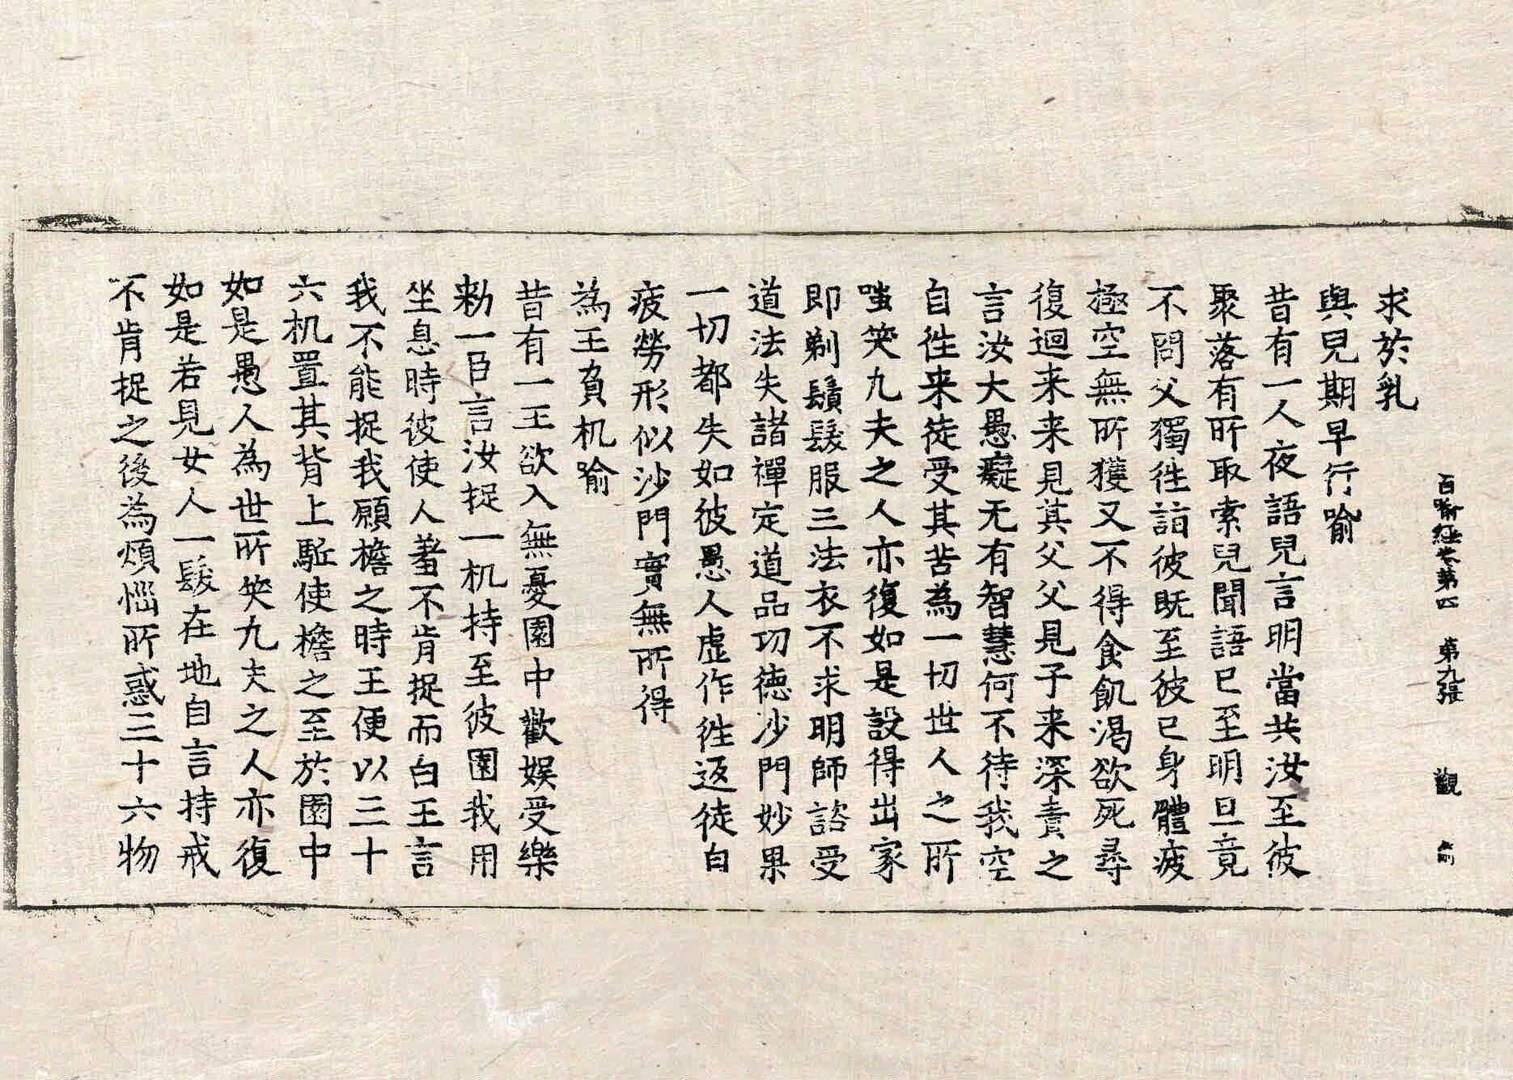 百喻經卷第四　第九張　觀
求於乳
與兒期早行喻
昔有一人夜語兒言明當共汝至彼
聚落有所取索兒聞語已至明旦竟
不問父獨往詣彼既至彼已身體疲
極空無所獲又不得食飢渴欲死尋
復迴来来見其父父見子来深責之
言汝大愚癡无有智慧何不待我空
自往来徒受其苦為一切世人之所
嗤笑凡夫之人亦復如是設得出家
即剃鬚髮服三法衣不求明師諮受
道法失諸禪定道品功德沙門妙果
一切都失如彼愚人虛作往返徒自
疲勞形似沙門實無所得
為王負机喻
昔有一王欲入無憂園中歡娛受樂
勑一臣言汝捉一机持至彼園我用
坐息時彼使人羞不肯捉而白王言
我不能捉我願檐之時王便以三十
六机置其背上駈使檐之至於園中
如是愚人為世所笑凡夫之人亦復
如是若見女人一髮在地自言持戒
不肯捉之後為煩惱所惑三十六物